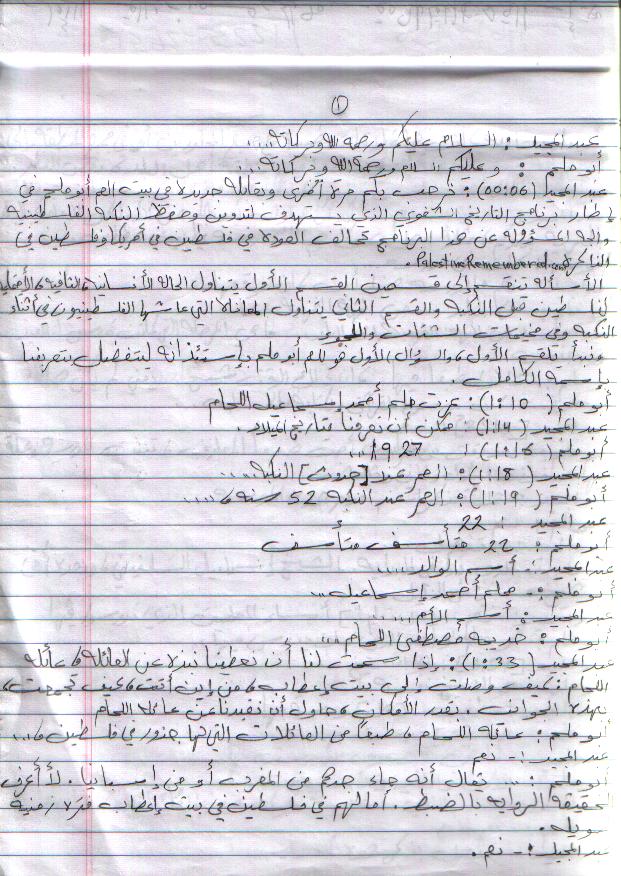 ①
عبد المجيد : السلام عليكم ورحمة الله وبركاته....
أبو ملحم : وعليكم السلام ورحمة الله وبركاته....
عبد المجيد (00:06) : نرحب بكم مرة أخرى ومقابلة جديدة في بيت العم أبو ملحم في
إطار برنامج التاريخ الشفوي الذي يستهدف تدوين وحفظ النكبة الفلسطينية
والجهة المسؤولة عن هذا البرنامج تحالف العودة لفلسطين في أمريكا وفلسطين في
الذاكرة Palestine Remembered.com
الأسئلة تنقسم إلى قسمين القسم الأول يتناول الحالة الأنسانية الثقافية والأجتماعية
لفلسطين قبل النكبة والقسم الثاني يتناول المعاناة التي عاشها الفلسطينيون في أثناء
النكبة وفي مخيمات الشتات واللجوء
ونبدأ بالقسم الأول والسؤال الأول هو للعم أبو ملحم بإستئذانه ليتفضل بتعريفنا
بإسمه الكامل.
أبو ملحم (1:10) : عزت ملحم أحمد إسماعيل اللحام
عبد المجيد (1:14) : ممكن أن تعرفنا بتاريخ الميلاد.
أبو ملحم (1:16) : 1927...
عبد المجيد (1:18) : العمر عند [حدوث] النكبة....
أبو ملحم (1:19) : العمر عند النكبة 52 سنة ،....
عبد المجيد : 22
أبو ملحم : 22 متأسف متأسف
عبد المجيد :- أسم الوالد....
أبو ملحم :- ملحم أحمد إسماعيل...
عبد المجيد : أسم الأم.....
أبو ملحم : خديجة مصطفى اللحام...
عبد المجيد (1:33) : إذا سمحت لنا أن تعطينا نبذة عن العائلة، عائلة
اللحام : كيف وصلت إلى بيت إعطاب، من اين أتت، كيف تجمعت،
بهذه الجوانب. بقدر الأمكان، حاول أن تفيدنا عن عائلة اللحام
أبو ملحم : عائلة اللحام، طبعاً من العائلات التي لها جذور في فلسطين،...
عبد المجيد :- نعم
أبو ملحم :- .... يقال أنه جاء جدهم من المغرب أو من إسبانيا. لا أعرف
حقيقة الرواية بالضبط. أما لهم في فلسطين في بيت إعطاب فترة زمنية
طويلة.
عبد المجيد :- نعم.